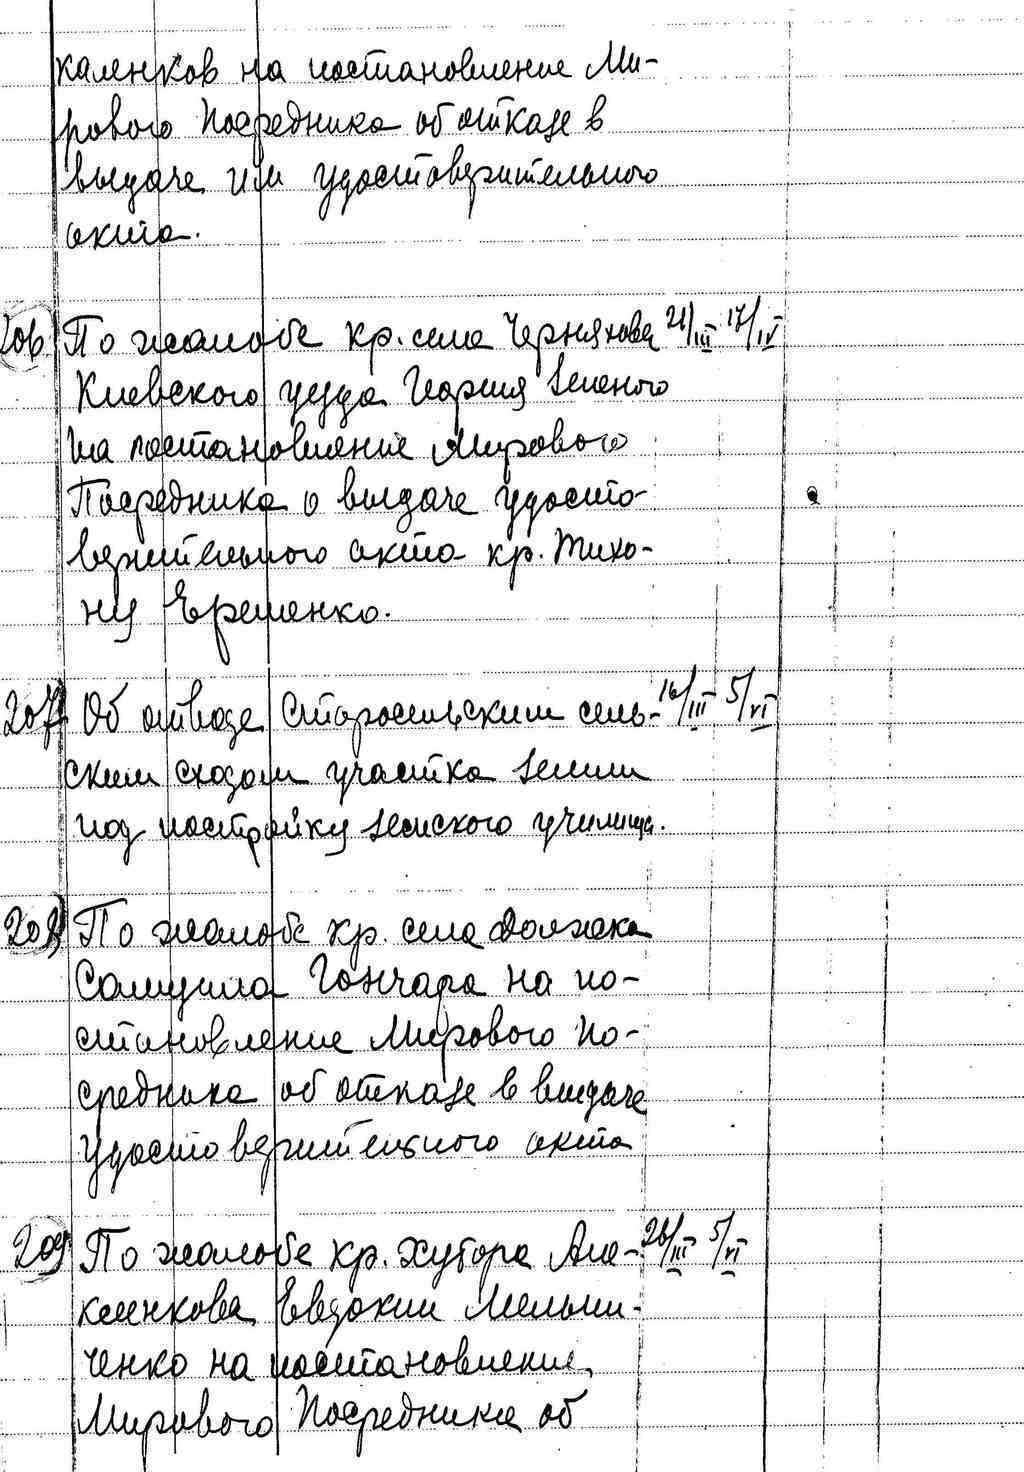 каленков на постановление Ми-
рового Посредника об отказе в
выдаче им удостоверительного
акта.
206 По жалобе кр. села Черняхова 21/III 17/IV
Киевского уезда Георгия Зеленого
на постановление Мирового
Посредника о выдаче удосто-
верительного акта кр. Тихо-
ну Еременко.
207 Об отводе Старосельским сель- 16/III 5/VI
ским сходом участка земли
под постройку земского училища.
208 По жалобе кр. села Должека
Самуила Гончара на по-
становление Мирового По-
средника об отказе в выдаче
удостоверительного акта
209 По жалобе кр. хутора 26/III 5/VI
Евдокии Мельни-
ченко на постановление
Мирового Посредника об